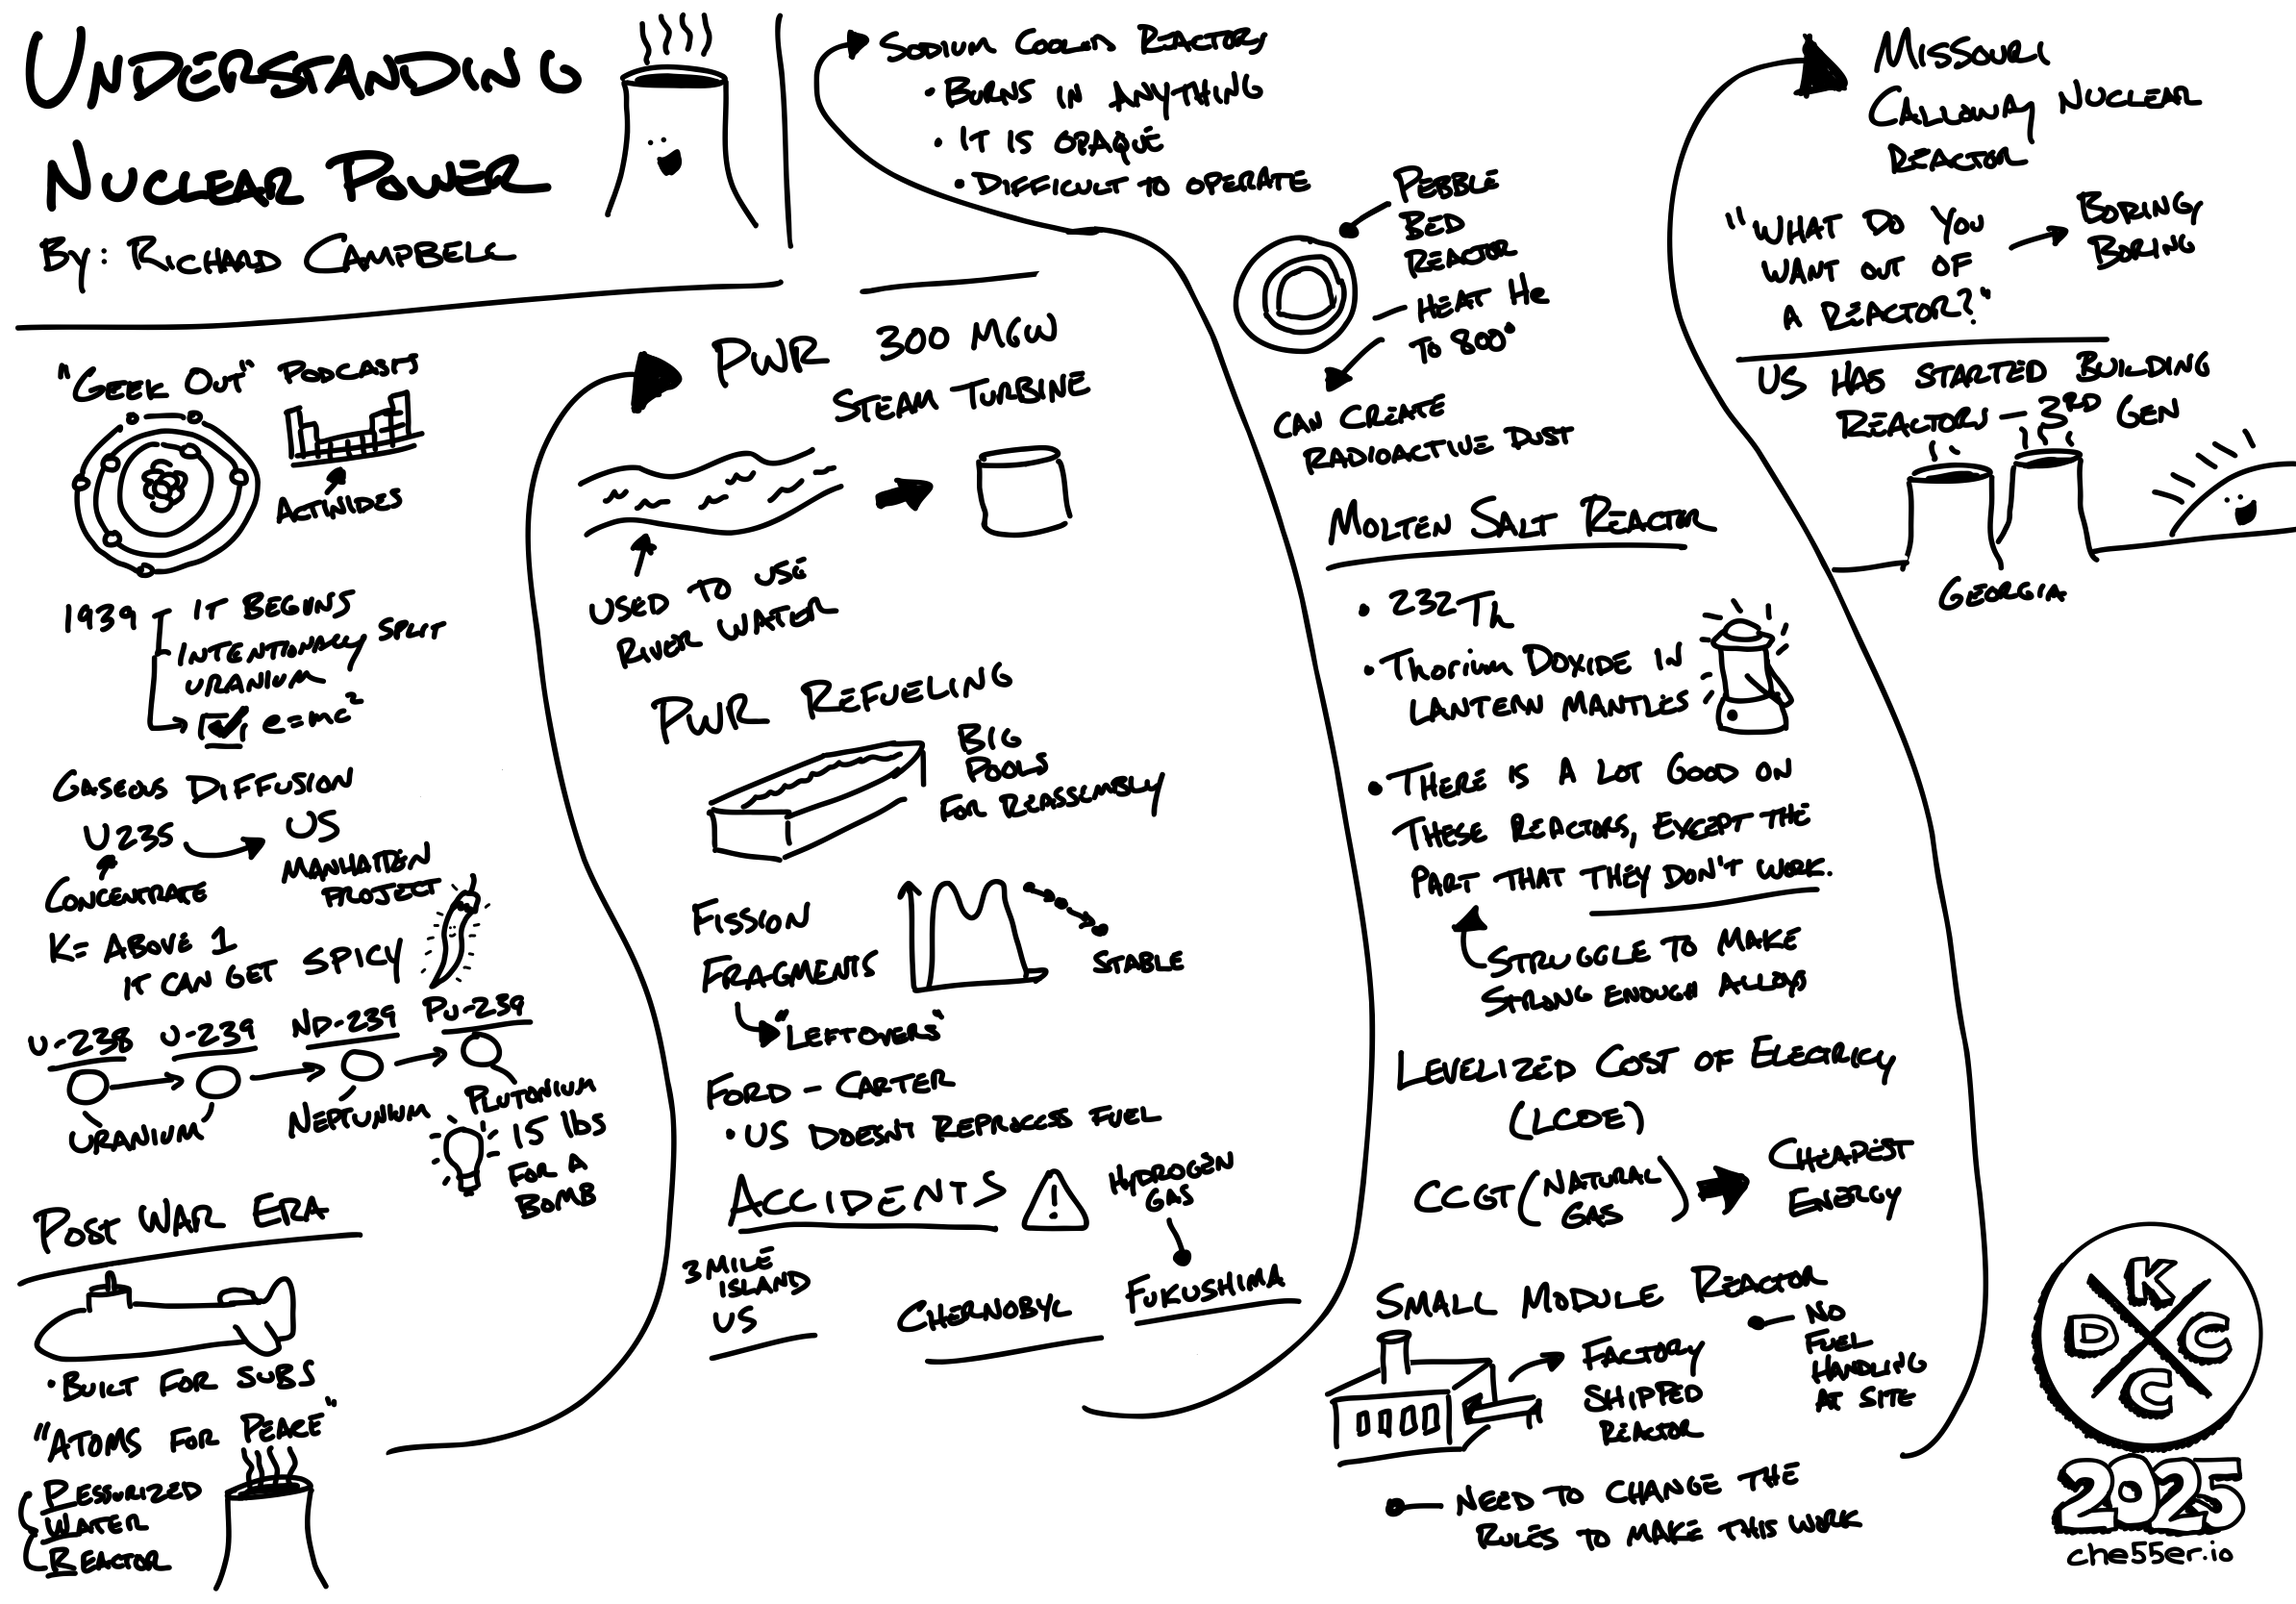 UNDERSTANDING
NUCLEAR POWER
BY: RICHARD CAMPBELL
"GEEK OUT" PODCASTS
ACTINIDES
1939 - IT BEGINS
- INTENTIONALLY SPLIT
URANIUM
e=mc²
GASEOUS DIFFUSION
U 235
US
MANHATTEN
PROJECT
CONCENTRATE
K= ABOVE 1
IT CAN GET SPICY
U-238 U-239 ND-239 PU-239
URANIUM
NEPTUNIUM
PLUTONIUM
15 lbs
FOR A
BOMB
POST WAR ERA
• BUILT FOR SUBS
"ATOMS FOR PEACE"
PESSURIZED
WATER
REACTOR
PWR 300 MGW
STEAM TURBINE
USED TO USE
RIVER WATER
PWR REFUELING
BIG
POOLS
FOR REASSEMBLY
FISSION
FRAGMENTS
STABLE
"LEFTOVERS"
FORD - CARTER
• US DOESN'T REPROCESS FUEL
ACCIDENTS
!
HYDROGEN
GAS
3 MILE
ISLAND
US
CHERNOBYL
FUKUSHIMA
SODIUM COOLED REACTORS
• BURNS IN ANYTHING
• IT IS OPAQUE
• DIFFICULT TO OPERATE
PEBBLE
BED
REACTOR
- HEAT He
TO 800°
CAN CREATE
RADIOACTIVE DUST
MOLTEN SALT REACTOR
• 232Th
• Thorium DOXIDE IN
LANTERN MANTLES
• THERE IS A LOT GOOD ON
THESE REACTORS, EXCEPT THE
PART THAT THEY DON'T WORK.
STRUGGLE TO MAKE
STRONG ENOUGH ALLOYS
LEVELIZED COST OF ELECTRICY
(LCOE)
CCGT (NATURAL
GAS)
CHEAPEST
ENERGY
SMALL MODULE REACTOR
FACTORY
SHIPPED
REACTOR
- NO
FUEL
HANDLING
AT SITE
- NEED TO CHANGE THE
RULES TO MAKE THIS WORK
MISSOURI
CALLOWAY NUCLEAR
REACTOR
"WHAT DO YOU
WANT OUT OF
A REACTOR?"
BORING,
BORING
US HAS STARTED BUILDING
REACTORS - 3RD GEN
GEORGIA
K
D C
C
2025
che55er.io